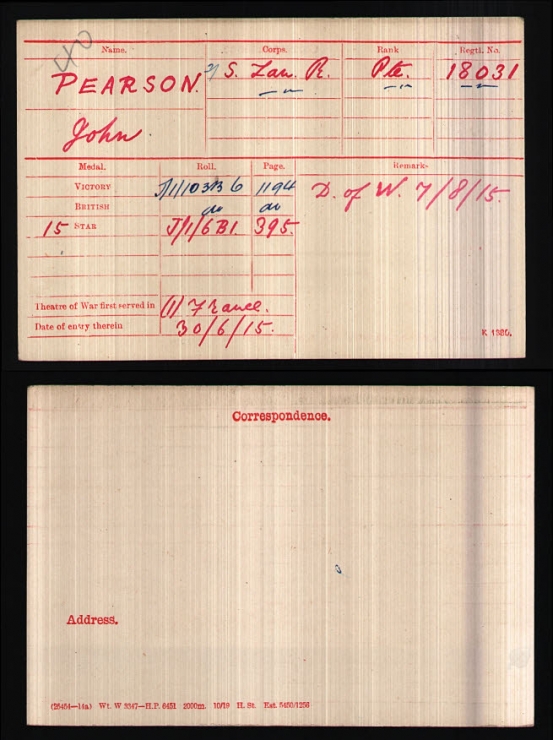 Name. Corps. Rank Regtl. No.
PEARSON. S. Lan. R. Pte. 18031
John.
Medal. Roll. Page. Remarks
VICTORY J/1/103B6 1194 D. of W. 7/8/15.
BRITISH do do
15 STAR J/1/6B1. 395.
Theatre of War first served in (1) France.
Date of entry therein 30/6/15.
K 1380.
Correspondence.
Address.
(26454—14a) Wt. W 3347—H.P. 6451 2000m. 10/19 H. St. Est. 5450/1256